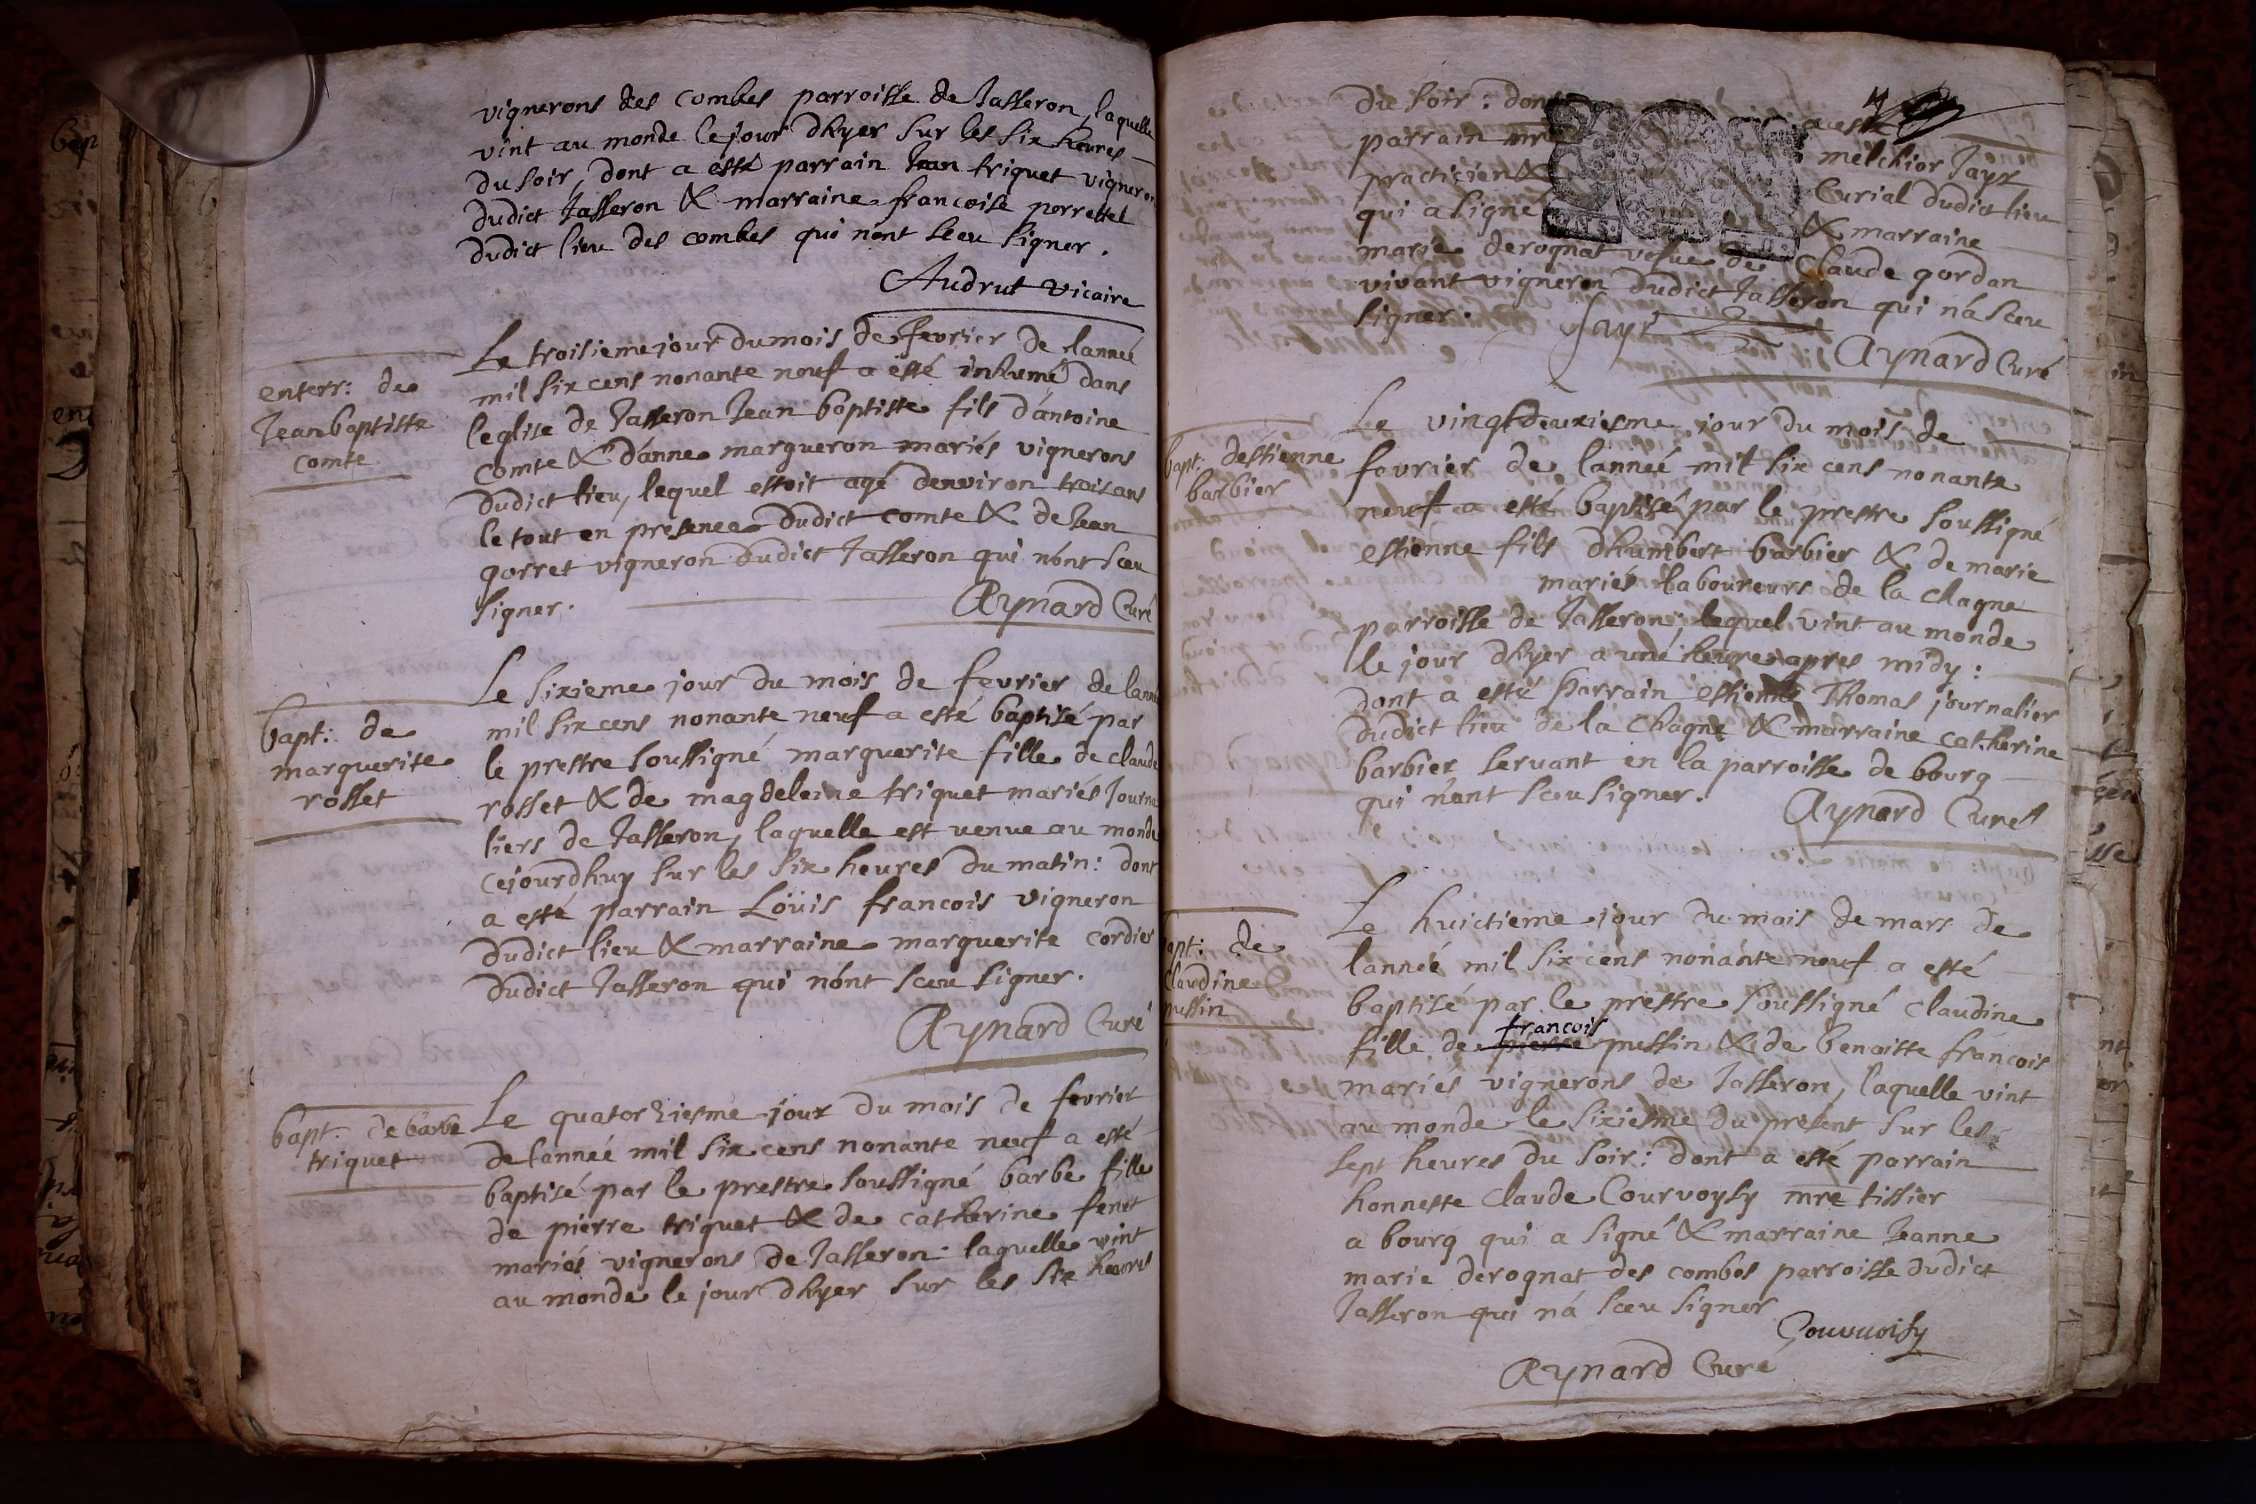 vignerons des combes parroisse de Jasseron, laquelle
vint au monde le jour dhyer sur les six heures
du soir, dont a esté parrain Jean triquet vigneron
dudict Jasseron & marraine francoise perrettel
dudict lieu des combes qui nónt sceu signer.
Audrut vicaire
enterr: de
Jean baptiste
comte
Le troisieme jour du mois de fevrier de lanneé
mil six cens nonante neuf a esté inhumé dans
leglise de Jasseron Jean baptiste fils dántoine
comte & dánne margueron mariés vignerons
dudict lieu, lequel estoit agé denviron trois ans
le tout en présence dudict comte & de Jean
gorret vigneron dudict Jasseron qui nónt sceu
signer.
Aynard Curé
bapt: de
marguerite
rosset
Le sixieme jour du mois de fevrier de lanneé
mil six cens nonante neuf a esté baptisé par
le prestre soussigné marguerite fille de claude
rosset & de magdeleine triquet mariés Journa
liers de Jasseron, laquelle est venue au monde
cejourdhuy sur les six heures du matin: dont
a esté parrain Loüis francois vigneron
dudict lieu & marraine marguerite cordier
dudict Jasseron qui nónt sceu signer.
Aynard Curé
bapt: de barbe
triquet
Le quatorziesme jour du mois de fevrier
de lanneé mil six cens nonante neuf a esté
baptisé par le prestre soussigné barbe fille
de pierre triquet & de catherine feret
mariés vignerons de Jasseron: laquelle vint
au monde le jour dhyer sur les six heures
du soir: dont a esté
parrain mre melchior Jayr
practicien & Curial dudict lieu
qui a signé & marraine
marie derognat vefve de Claude gordan
vivant vigneron dudict Jasseron qui ná sceu
signer.
Jayr
Aynard Curé
bapt: déstienne
barbier
Le vingtdeuxiesme jour du mois de
fevrier de lanneé mil six cens nonante
neuf a esté baptisé par le prestre soussigné
estienne fils dhumbert barbier & de marie
mariés laboureurs de la chagne
parroisse de Jasseron, lequel vint au monde
le jour dhyer a une heure apres midy:
dont a esté parrain estienne Thomas journalier
dudict lieu de la chagne & marraine catherine
barbier servant en la parroisse de bourg
qui nónt sceu signer.
Aynard Curé
bapt: de
Claudine
pussin
Le huictieme jour du mois de mars de
lanneé mil six cens nonante neuf a esté
baptisé par le prestre soussigné claudine
francois
fille de pierre pussin & de benoitte francois
mariés vignerons de Jasseron, laquelle vint
au monde le sixiesme du present sur les
sept heures du soir: dont a esté parrain
honneste claude Courvoysy mre tissier
a bourg qui a signé & marraine Jeanne
marie derognat des combes parroisse dudict
Jasseron qui ná sceu signer
Courvoisy
Aynard Curé